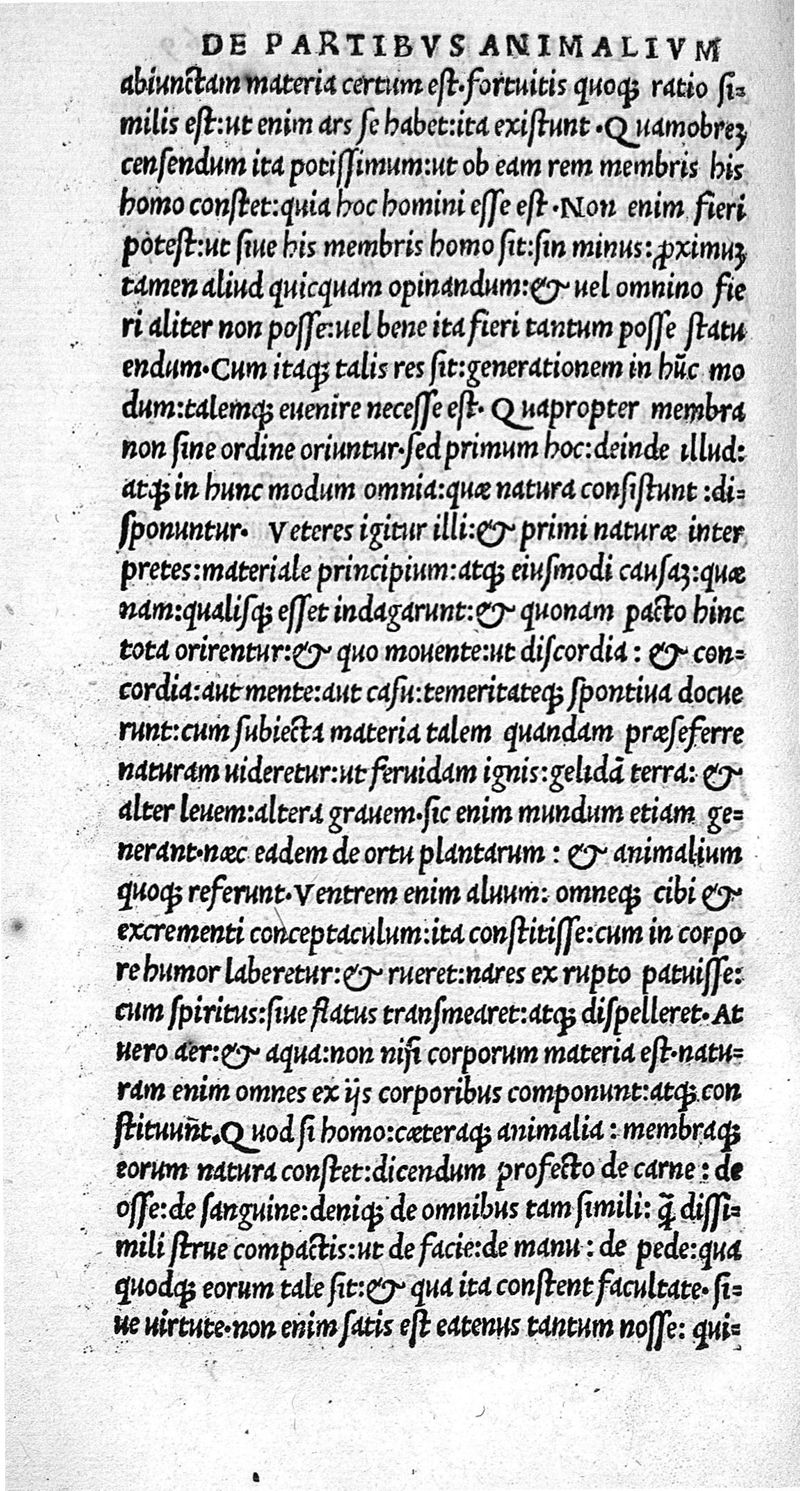 DE PARTIBVS ANIMALIVM
abiunctam materia certum est·fortuitis quoqꝫ ratio si-
milis est:ut enim ars se habet:ita existunt·Quamobreꝫ
censendum ita potissimum:ut ob eam rem membris his
homo constet:quia hoc homini esse est·Non enim fieri
potest:ut siue his membris homo sit:sin minus:ꝓximuꝫ
tamen aliud quicquam opinandum:& uel omnino fie
ri aliter non posse:uel bene ita fieri tantum posse statu
endum·Cum itaqꝫ talis res sit:generationem in hūc mo
dum:talemqꝫ euenire necesse est· Quapropter membra
non sine ordine oriuntur·sed primum hoc:deinde illud:
atqꝫ in hunc modum omnia:quæ natura consistunt :di-
sponuntur· Veteres igitur illi:& primi naturæ inter
pretes:materiale principium:atqꝫ eiusmodi causaꝫ:quæ
nam:qualisqꝫ esset indagarunt:& quonam pacto hinc
tota orirentur:& quo mouente:ut discordia : & con-
cordia:aut mente:aut casu:temeritateqꝫ spontiua docue
runt:cum subiecta materia talem quandam præseferre
naturam uideretur:ut feruidam ignis:gelidā terra: &
alter leuem:altera grauem·sic enim mundum etiam ge-
nerant·næc eadem de ortu plantarum : & animalium
quoqꝫ referunt·Ventrem enim aluum: omneqꝫ cibi &
excrementi conceptaculum:ita constitisse:cum in corpo
re humor laberetur:& rueret:nares ex rupto patuisse:
cum spiritus:siue flatus transmearet:atqꝫ dispelleret·At
uero aer:& aqua:non nisi corporum materia est·natu-
ram enim omnes ex ijs corporibus componunt:atqꝫ con
stituun̄t.Quod si homo:cæteraqꝫ animalia : membraqꝫ
eorum natura constet:dicendum profecto de carne : de
osse:de sanguine:deniqꝫ de omnibus tam simili: q̄ dissi-
mili strue compactis:ut de facie:de manu : de pede:qua
quodqꝫ eorum tale sit:& qua ita constent facultate· si-
ue uirtute·non enim satis est eatenus tantum nosse: qui-